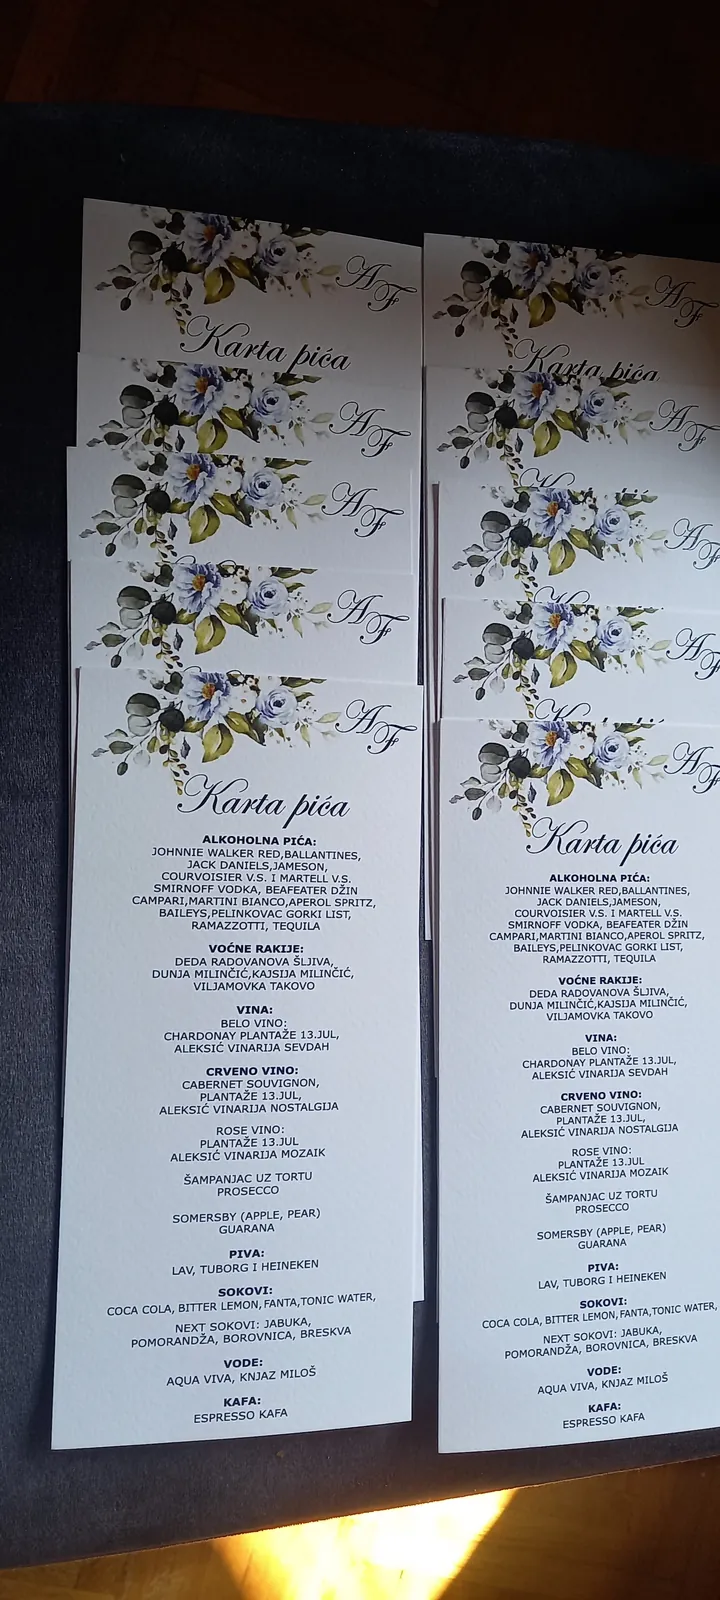 A F
Karta pića
A F
A F
A F
A F
Karta pića
ALKOHOLNA PIĆA:
JOHNNIE WALKER RED,BALLANTINES,
JACK DANIELS,JAMESON,
COURVOISIER V.S. I MARTELL V.S.
SMIRNOFF VODKA, BEAFEATER DŽIN
CAMPARI,MARTINI BIANCO,APEROL SPRITZ,
BAILEYS,PELINKOVAC GORKI LIST,
RAMAZZOTTI, TEQUILA
VOĆNE RAKIJE:
DEDA RADOVANOVA ŠLJIVA,
DUNJA MILINČIĆ,KAJSIJA MILINČIĆ,
VILJAMOVKA TAKOVO
VINA:
BELO VINO:
CHARDONAY PLANTAŽE 13.JUL,
ALEKSIĆ VINARIJA SEVDAH
CRVENO VINO:
CABERNET SOUVIGNON,
PLANTAŽE 13.JUL,
ALEKSIĆ VINARIJA NOSTALGIJA
ROSE VINO:
PLANTAŽE 13.JUL
ALEKSIĆ VINARIJA MOZAIK
ŠAMPANJAC UZ TORTU
PROSECCO
SOMERSBY (APPLE, PEAR)
GUARANA
PIVA:
LAV, TUBORG I HEINEKEN
SOKOVI:
COCA COLA, BITTER LEMON,FANTA,TONIC WATER,
NEXT SOKOVI: JABUKA,
POMORANDŽA, BOROVNICA, BRESKVA
VODE:
AQUA VIVA, KNJAZ MILOŠ
KAFA:
ESPRESSO KAFA
A F
Karta pića
A F
A F
A F
A F
Karta pića
ALKOHOLNA PIĆA:
JOHNNIE WALKER RED,BALLANTINES,
JACK DANIELS,JAMESON,
COURVOISIER V.S. I MARTELL V.S.
SMIRNOFF VODKA, BEAFEATER DŽIN
CAMPARI,MARTINI BIANCO,APEROL SPRITZ,
BAILEYS,PELINKOVAC GORKI LIST,
RAMAZZOTTI, TEQUILA
VOĆNE RAKIJE:
DEDA RADOVANOVA ŠLJIVA,
DUNJA MILINČIĆ,KAJSIJA MILINČIĆ,
VILJAMOVKA TAKOVO
VINA:
BELO VINO:
CHARDONAY PLANTAŽE 13.JUL,
ALEKSIĆ VINARIJA SEVDAH
CRVENO VINO:
CABERNET SOUVIGNON,
PLANTAŽE 13.JUL,
ALEKSIĆ VINARIJA NOSTALGIJA
ROSE VINO:
PLANTAŽE 13.JUL
ALEKSIĆ VINARIJA MOZAIK
ŠAMPANJAC UZ TORTU
PROSECCO
SOMERSBY (APPLE, PEAR)
GUARANA
PIVA:
LAV, TUBORG I HEINEKEN
SOKOVI:
COCA COLA, BITTER LEMON,FANTA,TONIC WATER,
NEXT SOKOVI: JABUKA,
POMORANDŽA, BOROVNICA, BRESKVA
VODE:
AQUA VIVA, KNJAZ MILOŠ
KAFA:
ESPRESSO KAFA